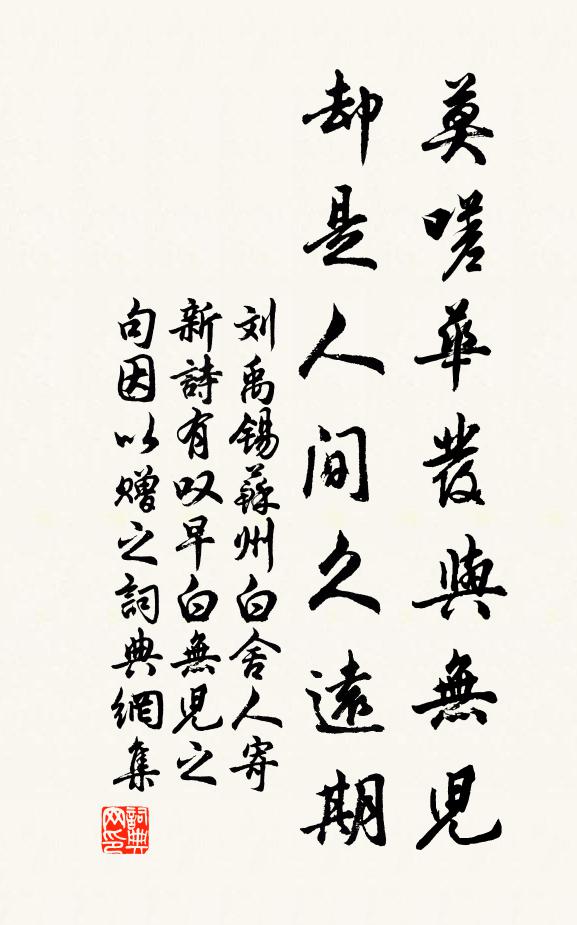 莫嗟華發與無兒
却是人間久遠期
刘禹锡蘇州白舍人寄
新詩有叹早白無児之
句因以赠之詞典網集
詞典
网印